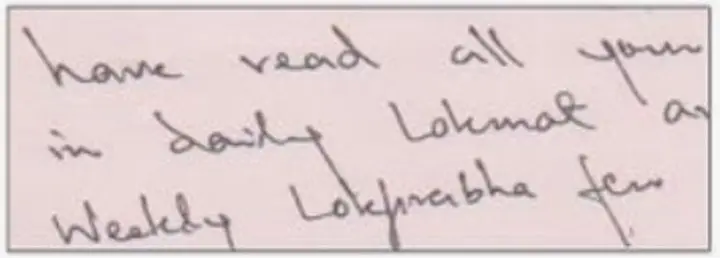 have read all your
in daily Lokmat
Weekly Lokprabha